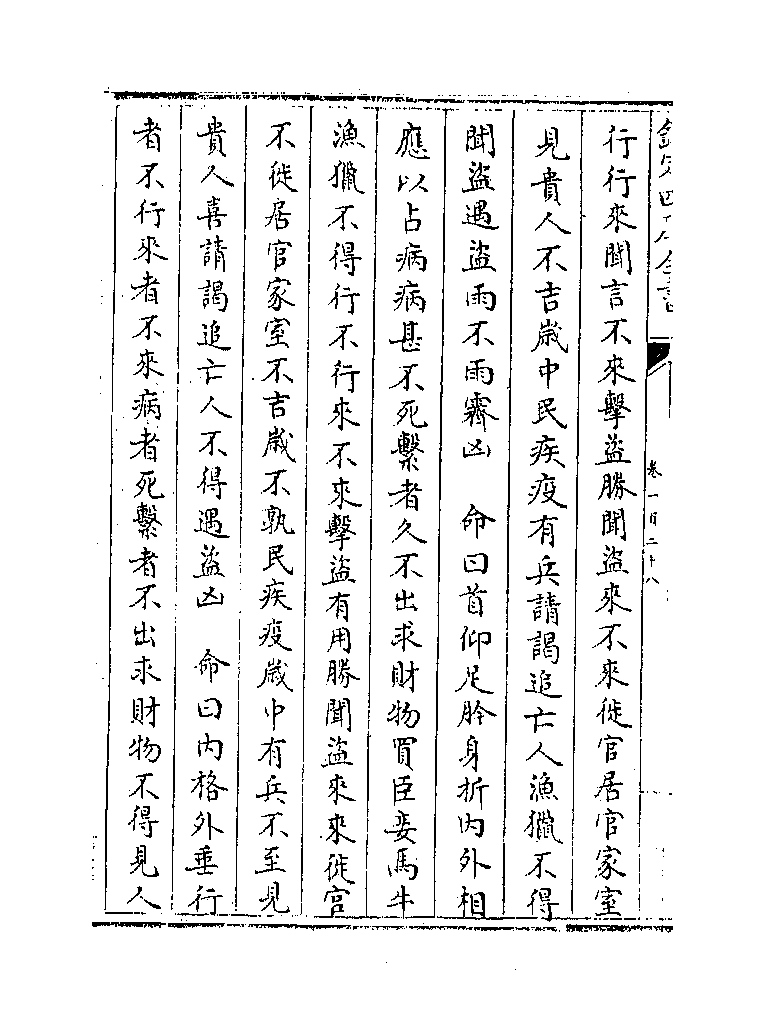 欽定四庫全書
卷一百二十八
行行來聞言不來擊盜勝聞盜來不來徙官居官家室
見貴人不吉歳中民疾疫有兵請謁追亡人漁獵不得
聞盜遇盜雨不雨霽凶　命曰首仰足肣身折内外相
應以占病病甚不死繫者久不出求財物買臣妾馬牛
漁獵不得行不行來不來擊盜有用勝聞盜來來徙官
不徙居官家室不吉歳不孰民疾疫歳中有兵不至見
貴人喜請謁追亡人不得遇盜凶　命曰内格外垂行
者不行來者不來病者死繫者不出求財物不得見人